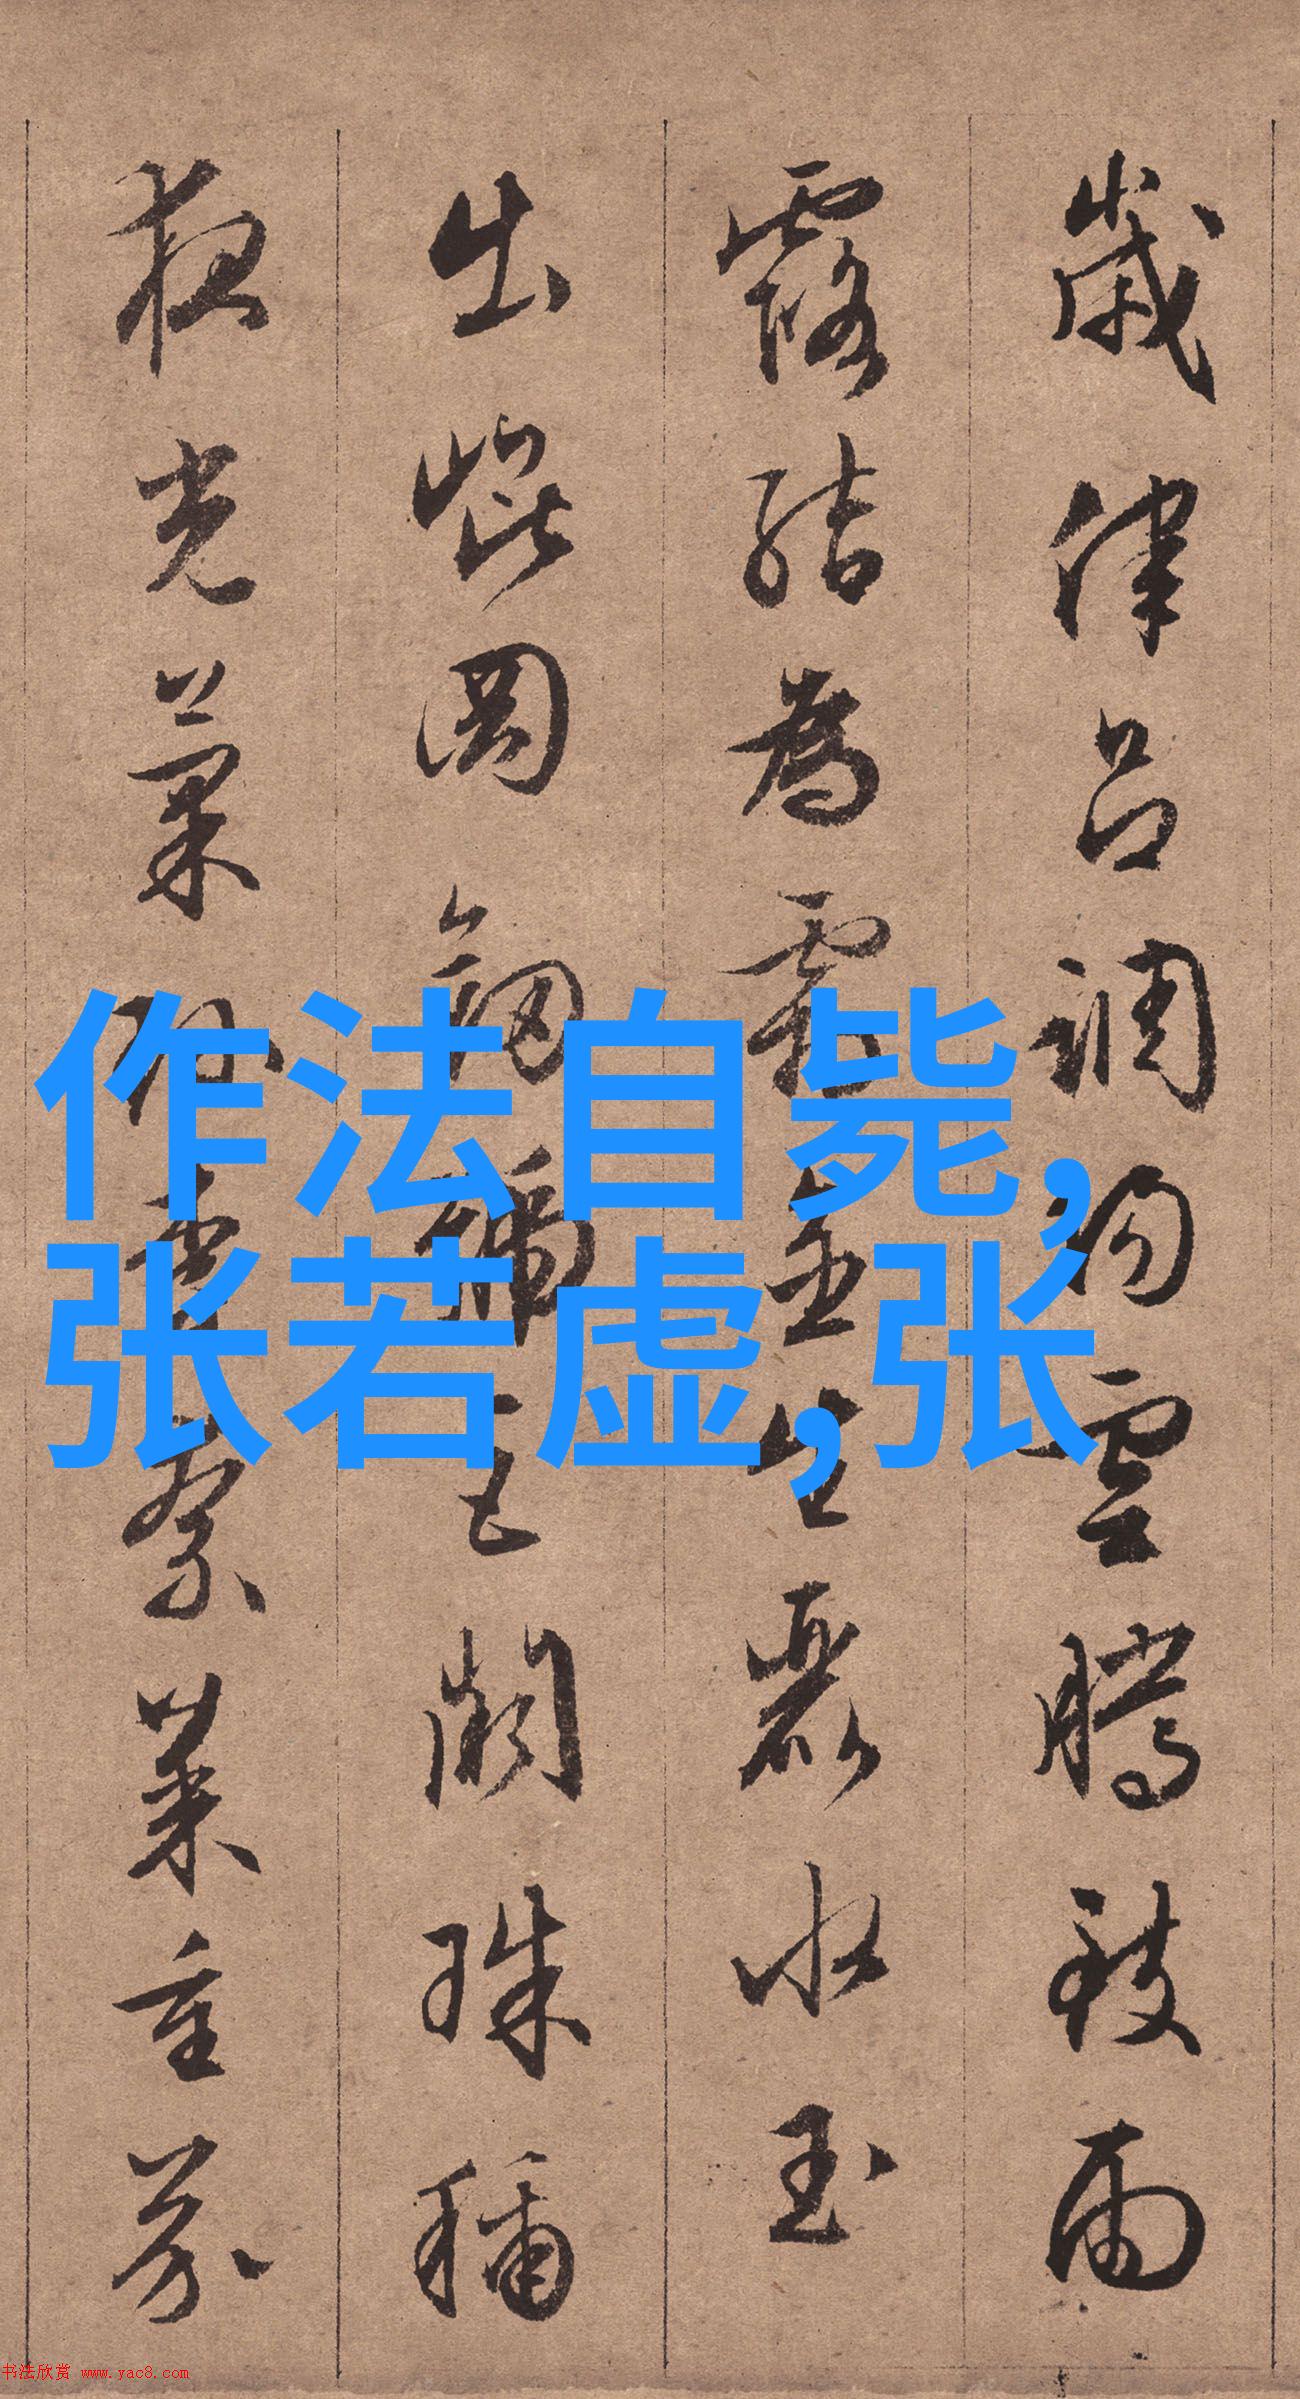 歲律吕調陽雲騰致雨
露結為霜金生麗水玉
出崐岡劒號巨闕珠稱
夜光菓珍李柰菜重芥
作法自毙,
张若虚,张
书法欣赏 www.yac8.com